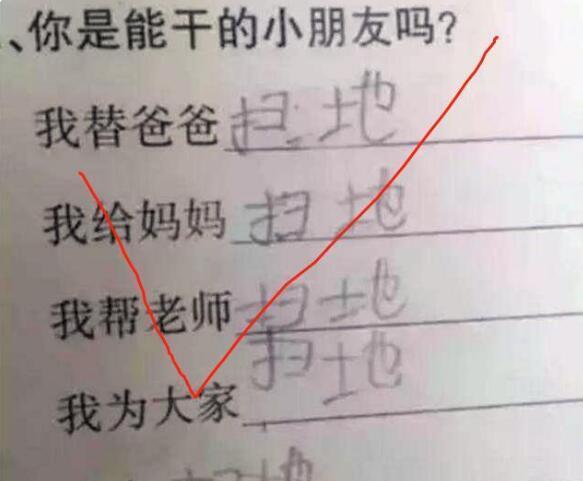 、你是能干的小朋友吗?
我替爸爸扫地
我给妈妈扫地
我帮老师扫地
我为大家扫地
扫地